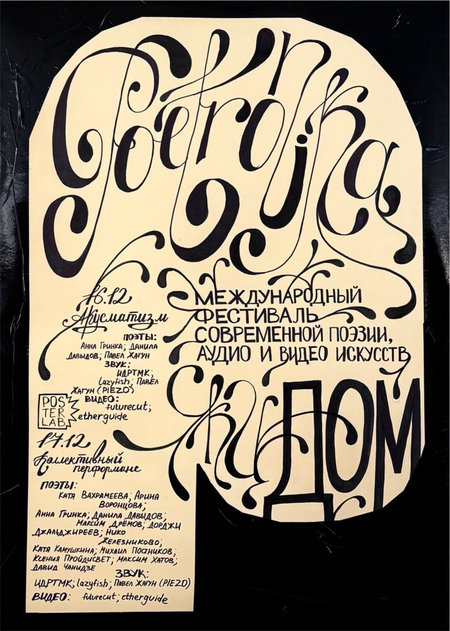 Poetronika
16.12
Акусматизм
МЕЖДУНАРОДНЫЙ
ФЕСТИВАЛЬ
СОВРЕМЕННОЙ ПОЭЗИИ,
АУДИО И ВИДЕО ИСКУССТВ
ПОЭТЫ:
АННА ГРИНКА; ДАНИЛА
ДАВЫДОВ; ПАВЕЛ ЖАГУН
ЗВУК:
ИДРТМК;
lazyfish; ПАВЕЛ
ЖАГУН (PIEZO)
ВИДЕО:
futurecut;
etherguide
POS
TER
LAB
ДОМ
17.12
Коллективный
перформанс
ПОЭТЫ:
КАТЯ ВАХРАМЕЕВА; АРИНА
ВОРОНЦОВА;
АННА ГРИНКА; ДАНИЛА ДАВЫДОВ;
МАКСИМ ДРЁМОВ; ДОРДЖИ
ДЖАЛЬДЖИРЕЕВ; НИКО
ЖЕЛЕЗНИКОВО;
КАТЯ КАМУШКИНА; МИХАИЛ ПОСТНИКОВ;
КСЕНИЯ ПРОЙДИСВЕТ; МАКСИМ ХАТОВ;
ДАВИД ЧАНИДЗЕ
ЗВУК:
ИДРТМК; lazyfish; ПАВЕЛ ЖАГУН (PIEZO)
ВИДЕО: futurecut; etherguide